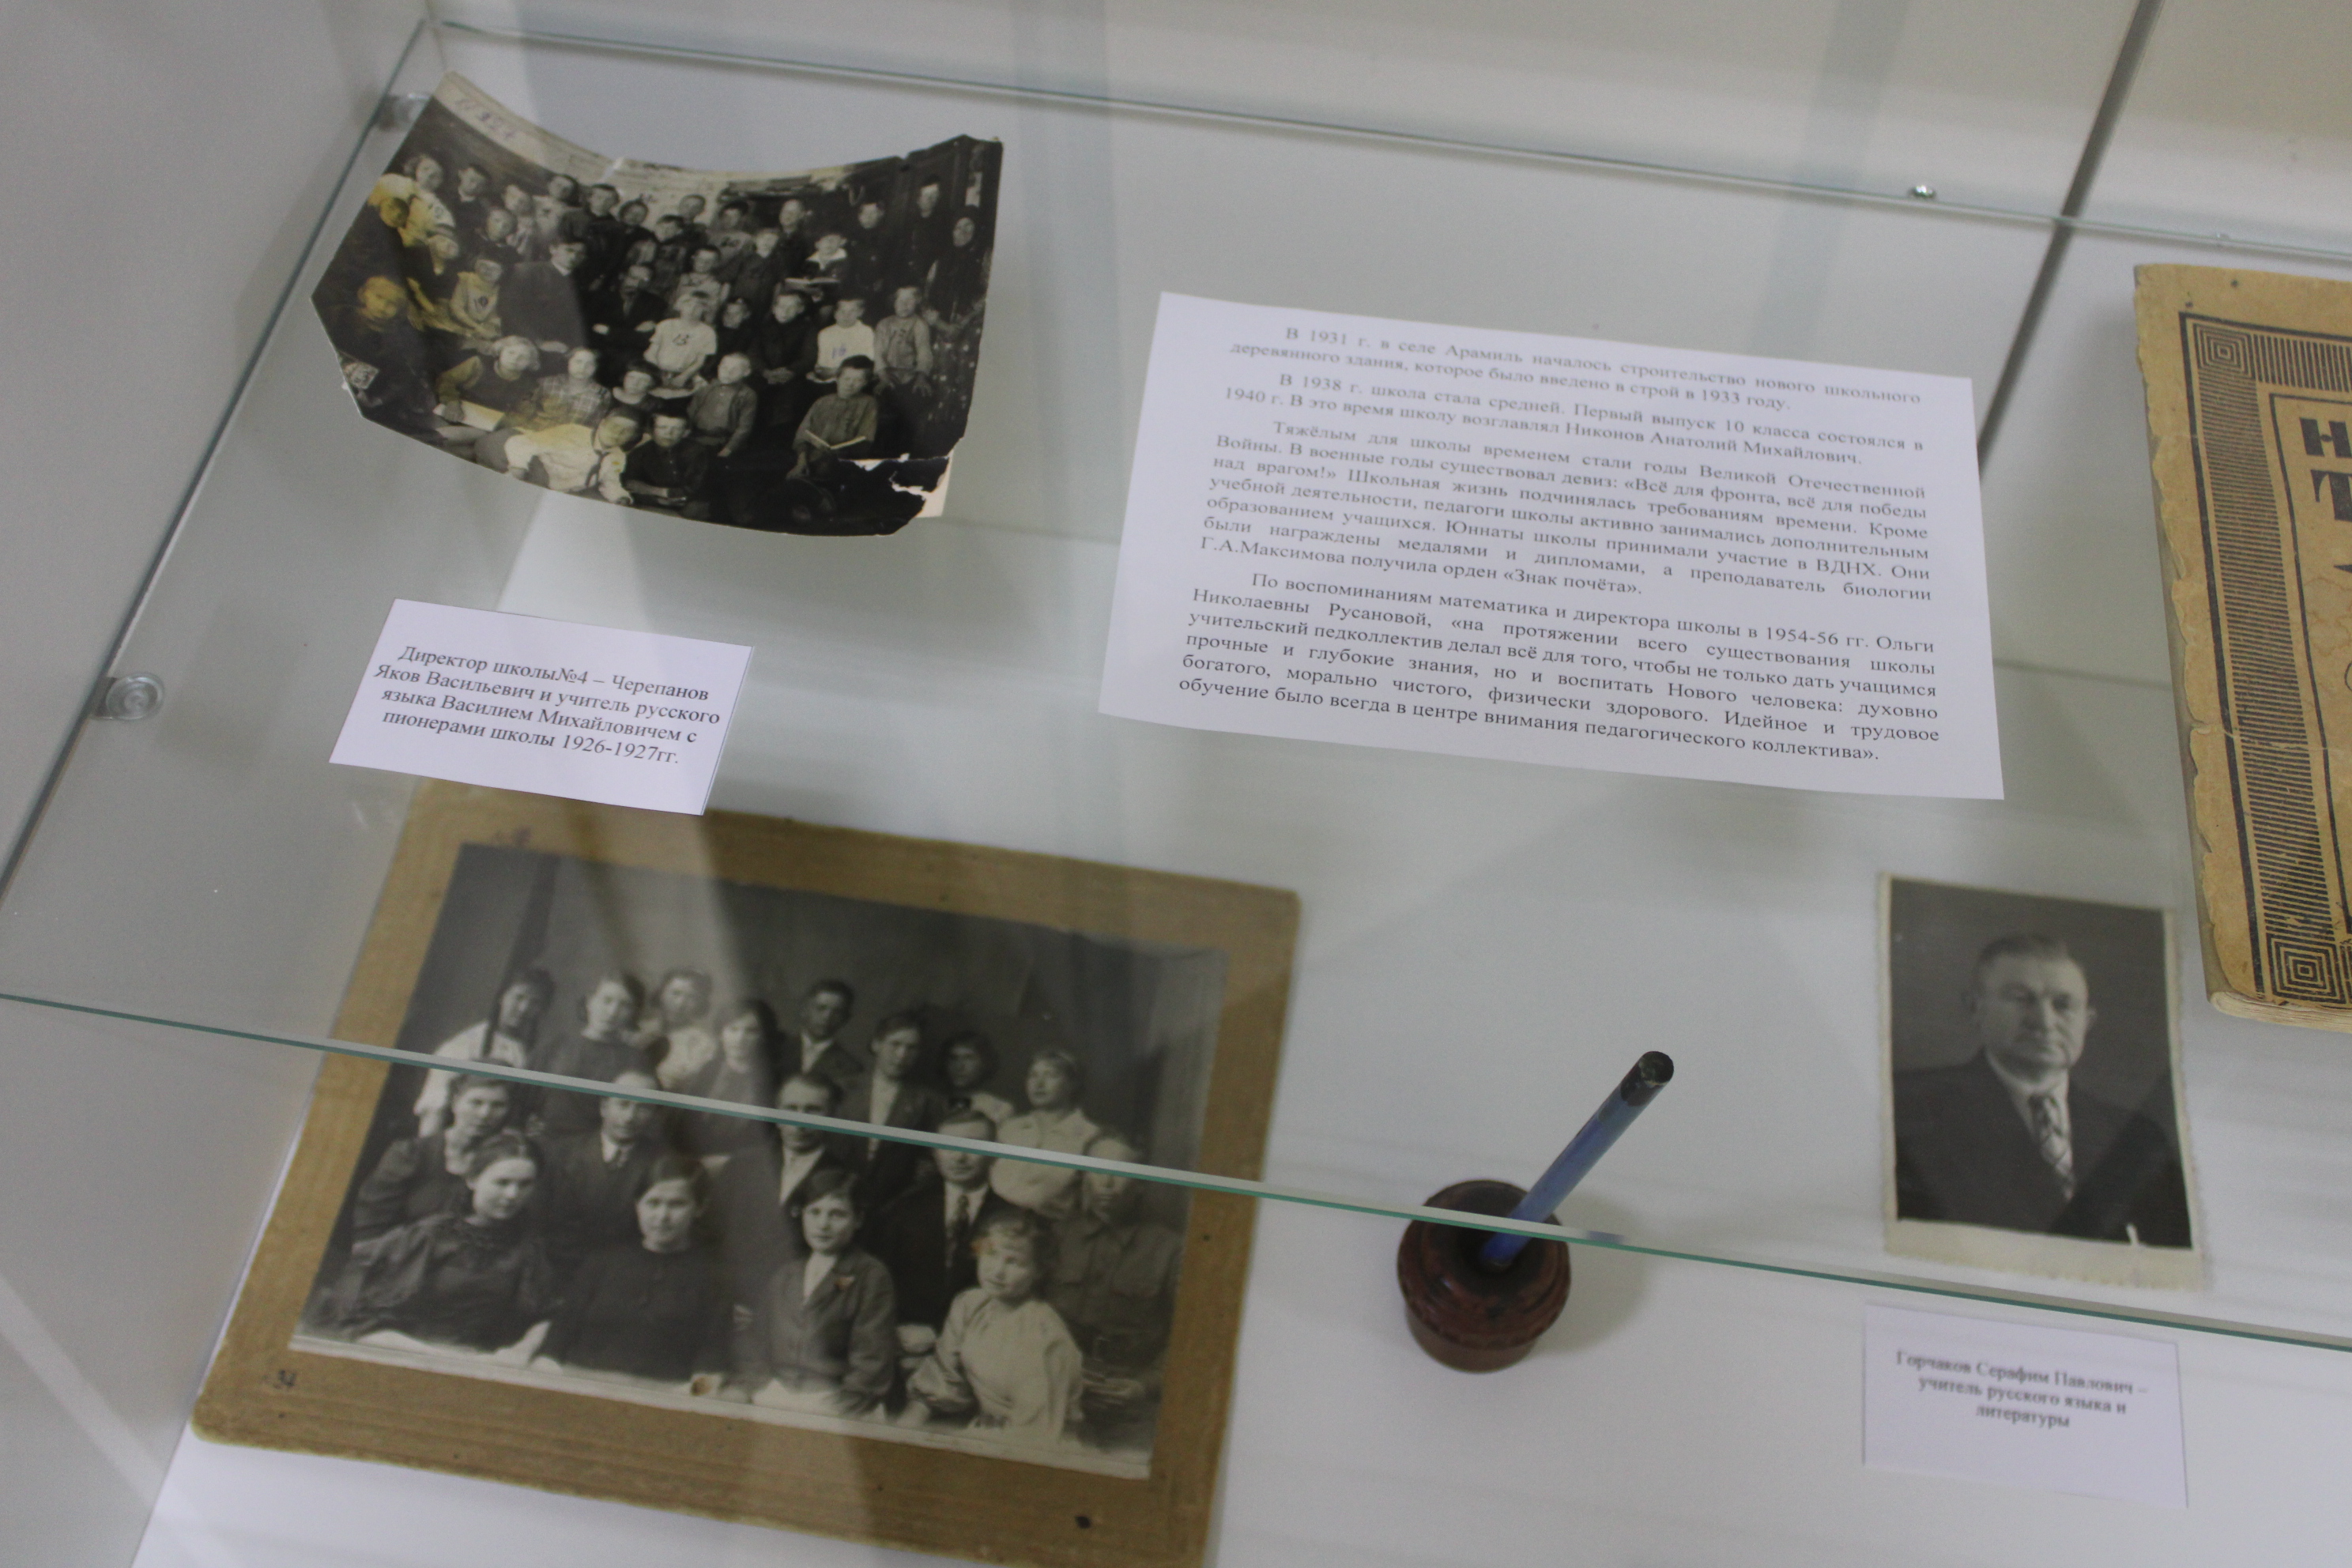 В 1931 г. в селе Арамиль началось строительство нового школьного
деревянного здания, которое было введено в строй в 1933 году.
В 1938 г. школа стала средней. Первый выпуск 10 класса состоялся в
1940 г. В это время школу возглавлял Никонов Анатолий Михайлович.
Тяжёлым для школы временем стали годы Великой Отечественной
Войны. В военные годы существовал девиз: «Всё для фронта, всё для победы
над врагом!» Школьная жизнь подчинялась требованиям времени. Кроме
учебной деятельности, педагоги школы активно занимались дополнительным
образованием учащихся. Юннаты школы принимали участие в ВДНХ. Они
были награждены медалями и дипломами, а преподаватель биологии
Г.А.Максимова получила орден «Знак почёта».
По воспоминаниям математика и директора школы в 1954-56 гг. Ольги
Николаевны Русановой, «на протяжении всего существования школы
учительский педколлектив делал всё для того, чтобы не только дать учащимся
прочные и глубокие знания, но и воспитать Нового человека: духовно
богатого, морально чистого, физически здорового. Идейное и трудовое
обучение было всегда в центре внимания педагогического коллектива».
Директор школы№4 – Черепанов
Яков Васильевич и учитель русского
языка Василием Михайловичем с
пионерами школы 1926-1927гг.
13
Горчаков Серафим Павлович –
учитель русского языка и
литературы